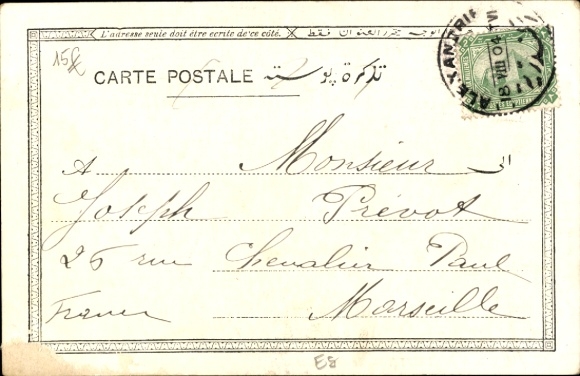 L'adresse seule doit être écrite de ce côté.
15f
CARTE POSTALE تذكرة بوستة
ALEXANDRIE
A Monsieur الى
Joseph Prévot
26 rue Chevalier Paul
France Marseille
E8